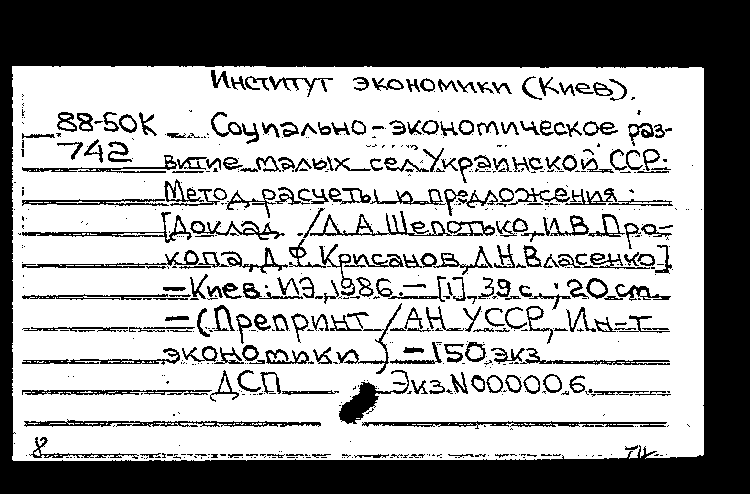 Институт экономики (Киев).
88-50К Социально-экономическое раз-
742 витие малых сел Украинской ССР.
Метод. расчеты и предложения:
[Доклад / Л. А. Шепотько, И. В. Про-
копа, Д. Ф. Крисанов, Л. Н. Власенко]
– Киев: ИЭ, 1986. – [1], 39 с.; 20 см.
– (Препринт / АН УССР, Ин-т
экономики) – 150 экз.
ДСП Экз. N 000006.
8